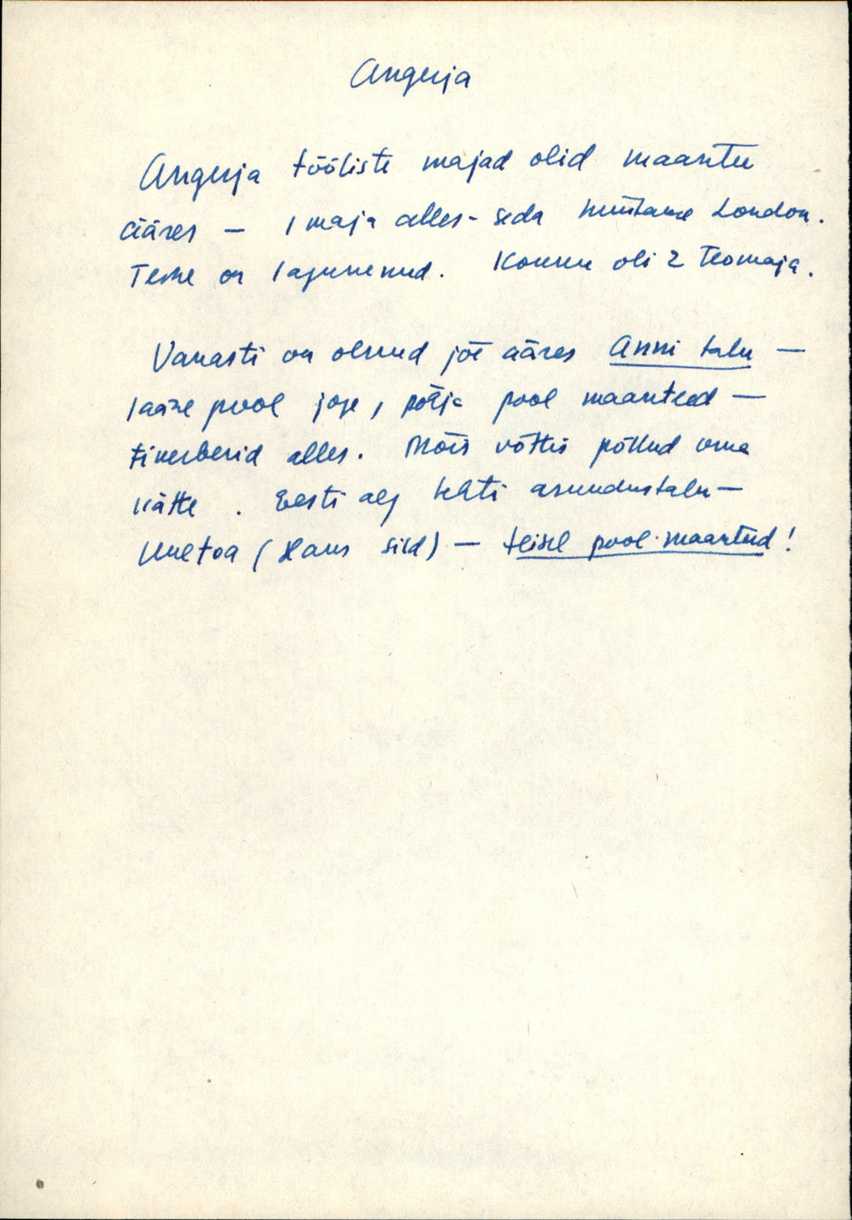 Angerja
Angerja tööliste majad olid maantee
ääres – 1 maja alles - seda hüütakse London.
Teine on lagunenud. Kokku oli 2 Teomaja.
Vanasti on olnud jõe ääres Anni talu –
lääne pool jõge, põhja pool maanteed –
alles. Mõis võttis põllud oma
kätte. Eesti aeg tehti asundustalu –
Uuetoa (Hans Sild) – teisel pool maanteed!